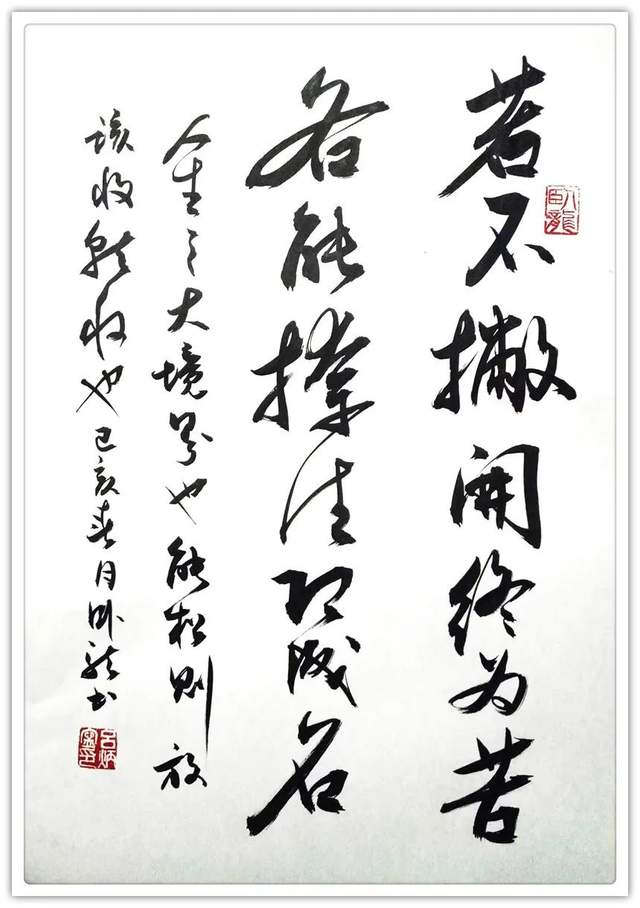 若不撇開終為苦
各能捺住即成名
人生之大境界也能松則放
該收就收也己亥春月卧龍書
臥龍